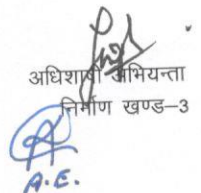 अधिशाषी अभियन्ता
निर्माण खण्ड–3
A.E.